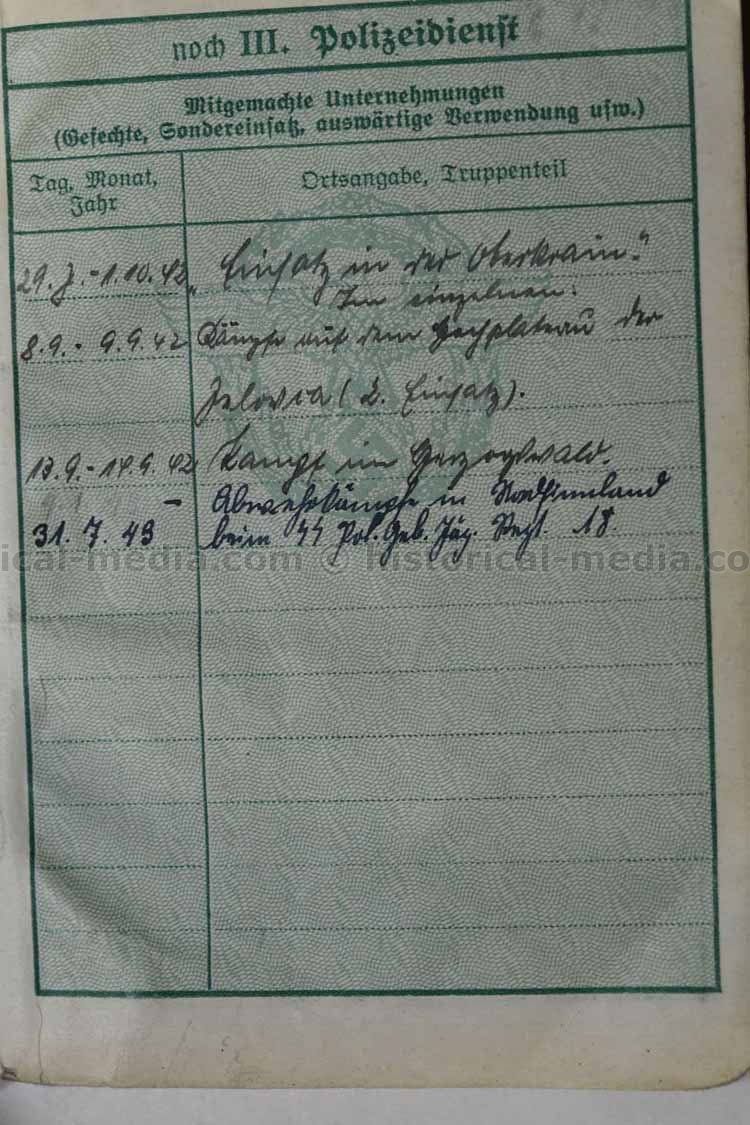 noch III. Polizeidienst
Mitgemachte Unternehmungen
(Gefechte, Sondereinsatz, auswärtige Verwendung usw.)
Tag, Monat,
Jahr
Ortsangabe, Truppenteil
29. 7. - 1.10.42 „Einsatz in der Oberkrain."
Im einzelnen:
8.9. - 9.9.42 Kämpfe auf dem Hochplateau der
Jelovca (2. Einsatz).
13.9. - 14.9.42 Kampf im Herzogswald.
- Abwehrkämpfe in Nordfinnland
31. 7. 43 beim SS Pol. Geb. Jäg. Regt. 18.
ical-media.com © historical-media.co